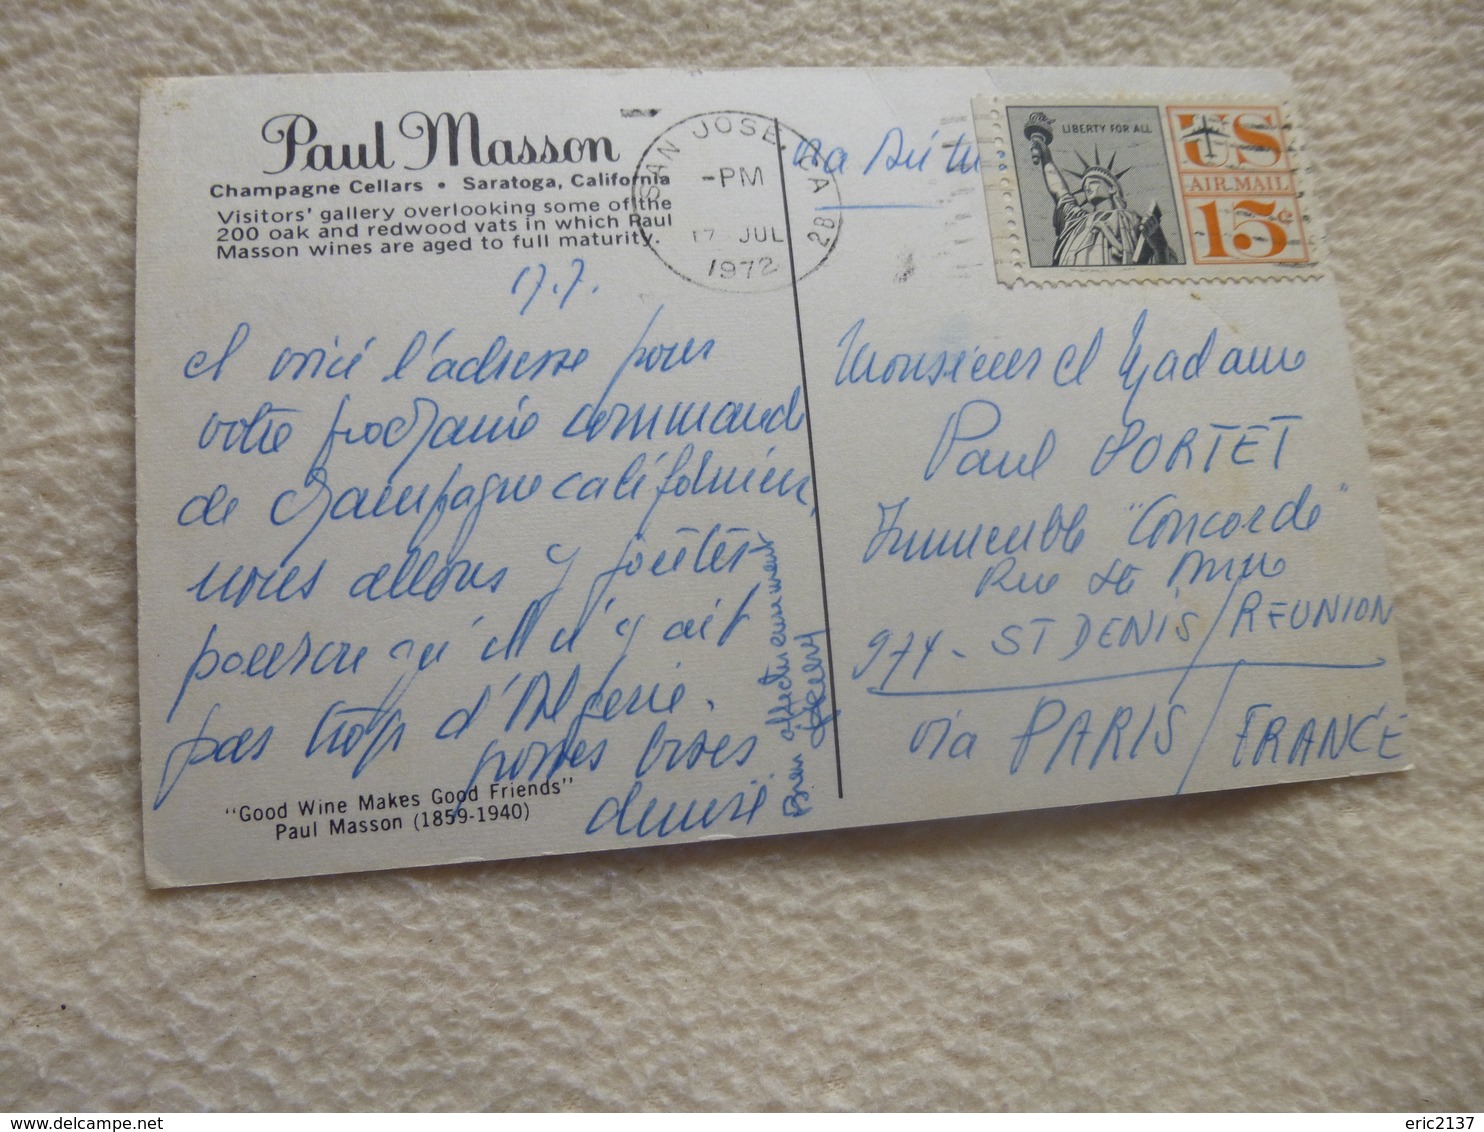 Paul Masson
Champagne Cellars • Saratoga, California
Visitors' gallery overlooking some of the
200 oak and redwood vats in which Paul
Masson wines are aged to full maturity.
SAN JOSE, CA
-PM
17 JUL
1972
28
LIBERTY FOR ALL
US
AIR MAIL
15c
17.7.
et voici l'adresse pour
votre prochaine commande
de champagne californien,
nous allons y goûter
pourvu qu'il n'y ait
pas trop d'Algérie.
bises
denise
Bien affectueusement
"Good Wine Makes Good Friends"
Paul Masson (1859-1940)
Monsieur et Madame
Paul PORTET
Immeuble "Concorde"
Rue Ste Anne
974 - ST DENIS / REUNION
via PARIS / FRANCE
eric2137